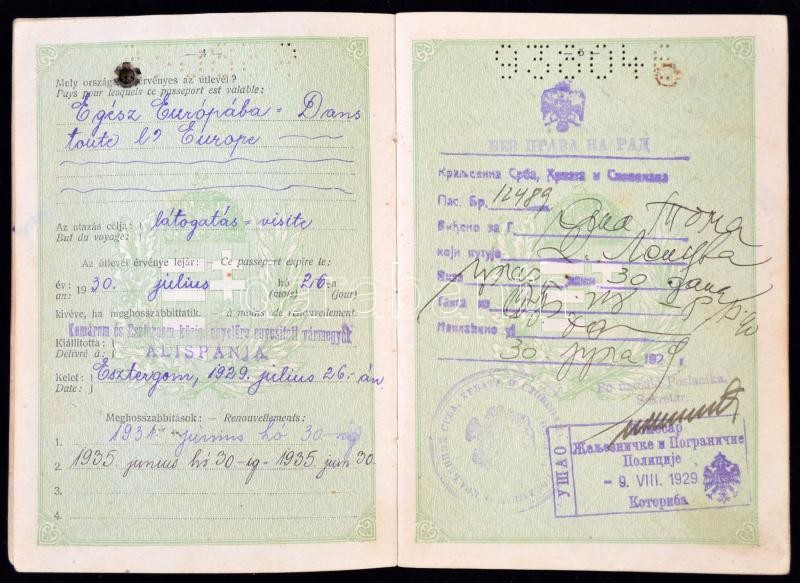 Mely országra érvényes az útlevél?
Pays pour lesquels ce passeport est valable:
Egész Európába = Dans
toute l' Europe
Az utazás célja: látogatás = visite
But du voyage:
Az útlevél érvénye lejár: — Ce passeport expire le:
év: 1930. július hó 26-án
an: (mois) (jour)
kivéve, ha meghosszabbíttatik. — à moins de renouvellement.
Komárom és Esztergom közig. egyelőre egyesített vármegyék
Kiállította: ALISPÁNJA
Délivré à:
Kelet: Esztergom, 1929. július 26.-án
Date:
Meghosszabbítások: — Renouvellements:
1. 1931. június hó 30-ig
2. 1935. junius hó 30-ig - 1935. jun 30.
3.
4.
— 5 —
933046
БЕЗ ПРАВА НА РАД
Краљевина Срба, Хрвата и Словенаца
Пас. Бр. 12489
Виђено за Г.
који путује
Виза 30 дана
Такса по
Наплаћено
30 јула 1929
Po naredbi Poslanika,
Sekretar.
УШАО
Комесар
Жељезничке и Пограничне
Полиције
- 9. VIII. 1929
Которива